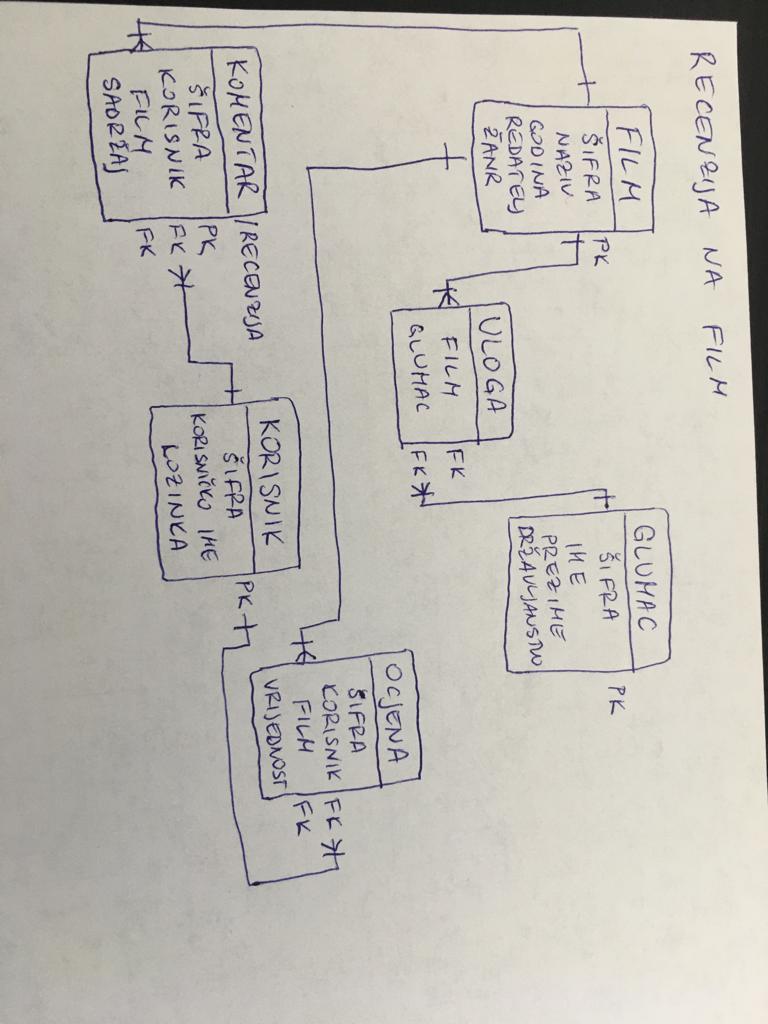 RECENZIJA NA FILM
FILM
ŠIFRA PK
NAZIV
GODINA
REDATELJ
ŽANR
GLUMAC
ŠIFRA PK
IME
PREZIME
DRŽAVLJANSTVO
ULOGA
FILM FK
GLUMAC FK
OCJENA
ŠIFRA
KORISNIK FK
FILM FK
VRIJEDNOST
KOMENTAR /RECENZIJA
ŠIFRA PK
KORISNIK FK
FILM FK
SADRŽAJ
KORISNIK
ŠIFRA PK
KORISNIČKO IME
LOZINKA